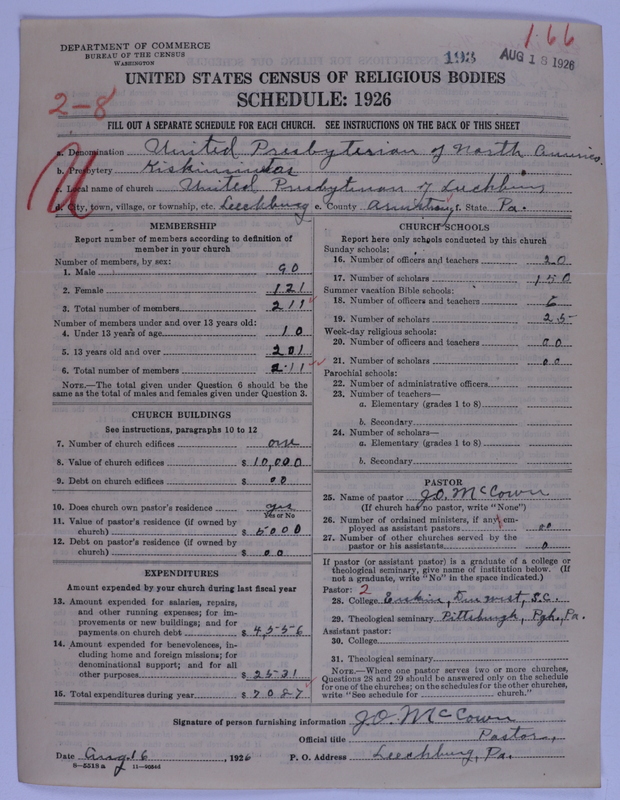 1.66
DEPARTMENT OF COMMERCE
BUREAU OF THE CENSUS
WASHINGTON
193
AUG 18 1926
UNITED STATES CENSUS OF RELIGIOUS BODIES
SCHEDULE: 1926
2-8
FILL OUT A SEPARATE SCHEDULE FOR EACH CHURCH. SEE INSTRUCTIONS ON THE BACK OF THIS SHEET
a. Denomination United Presbyterian of North
b. Presbytery Kiskiminetas
c. Local name of church United Presbyterian of
d. City, town, village, or township, etc. Leechburg e. County Armstrong f. State Pa.
MEMBERSHIP
Report number of members according to definition of
member in your church
Number of members, by sex:
1. Male 90
2. Female 121
3. Total number of members 211
Number of members under and over 13 years old:
4. Under 13 years of age 10
5. 13 years old and over 201
6. Total number of members 211
NOTE.—The total given under Question 6 should be the
same as the total of males and females given under Question 3.
CHURCH BUILDINGS
See instructions, paragraphs 10 to 12
7. Number of church edifices one
8. Value of church edifices $ 10,000
9. Debt on church edifices $ 00
10. Does church own pastor's residence yes
Yes or No
11. Value of pastor's residence (if owned by
church) $ 5000
12. Debt on pastor's residence (if owned by
church) $ 00
EXPENDITURES
Amount expended by your church during last fiscal year
13. Amount expended for salaries, repairs,
and other running expenses; for im-
provements or new buildings; and for
payments on church debt $ 4556
14. Amount expended for benevolences, in-
cluding home and foreign missions; for
denominational support; and for all
other purposes $ 2531
15. Total expenditures during year $ 7087
CHURCH SCHOOLS
Report here only schools conducted by this church
Sunday schools:
16. Number of officers and teachers 20
17. Number of scholars 150
Summer vacation Bible schools:
18. Number of officers and teachers 6
19. Number of scholars 25
Week-day religious schools:
20. Number of officers and teachers 00
21. Number of scholars 00
Parochial schools:
22. Number of administrative officers
23. Number of teachers—
a. Elementary (grades 1 to 8)
b. Secondary
24. Number of scholars—
a. Elementary (grades 1 to 8)
b. Secondary
PASTOR
25. Name of pastor J.O. McCown
(If church has no pastor, write "None")
26. Number of ordained ministers, if any em-
ployed as assistant pastors 00
27. Number of other churches served by the
pastor or his assistants 0
If pastor (or assistant pastor) is a graduate of a college or
theological seminary, give name of institution below. (If
not a graduate, write "No" in the space indicated.)
Pastor: 2
28. College Erskin, Due West, S.C.
29. Theological seminary Pittsburgh, Pgh, Pa.
Assistant pastor:
30. College
31. Theological seminary
NOTE.—Where one pastor serves two or more churches,
Questions 28 and 29 should be answered only on the schedule
for one of the churches; on the schedules for the other churches,
write "See schedule for church."
Signature of person furnishing information J.O. McCown
Official title Pastor
Date Aug. 16, 1926 P. O. Address Leechburg, Pa.
8—5518 a